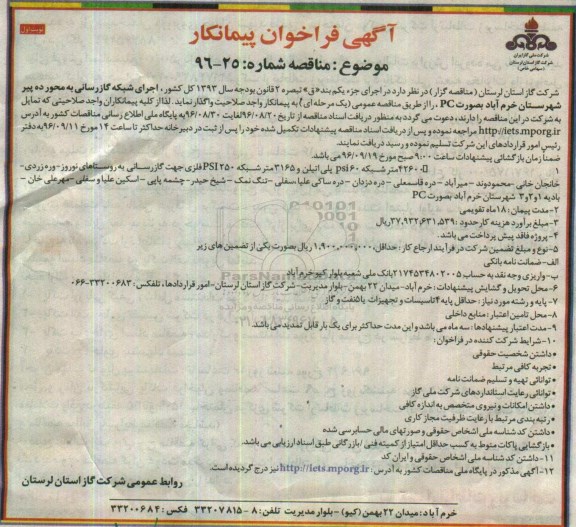 نوبت اول
آگهی فراخوان پیمانکار
موضوع: مناقصه شماره: ۲۵-۹۶
شرکت ملی گاز ایران
شرکت گاز استان لرستان
(سهامی خاص)
شرکت گاز استان لرستان (مناقصه گزار) در نظر دارد در اجرای جزء یکم بند «ق» تبصره ۲ قانون بودجه سال ۱۳۹۳ کل کشور، اجرای شبکه گازرسانی به محور ده پیر
شهرستان خرم آباد بصورت PC، را از طریق مناقصه عمومی (یک مرحله ای) به پیمانکار واجد صلاحیت واگذار نماید. لذا از کلیه پیمانکاران واجد صلاحیتی که تمایل
به شرکت در این مناقصه را دارند، دعوت می گردد به منظور دریافت اسناد مناقصه از تاریخ ۹۶/۰۸/۲۰ لغایت ۹۶/۰۸/۳۰ به پایگاه ملی اطلاع رسانی مناقصات کشور به آدرس
http://iets.mporg.ir مراجعه نموده و پس از دریافت اسناد مناقصه پیشنهادات تکمیل شده خود را پس از ثبت در دبیرخانه حداکثر تا ساعت ۱۴ مورخ ۹۶/۰۹/۱۱ به دفتر
رئیس امور قراردادهای این شرکت تسلیم نموده و رسید دریافت نمایند.
ضمنا زمان بازگشائی پیشنهادات ساعت ۹:۰۰ صبح مورخ ۹۶/۰۹/۱۹ می باشد.
۱- ۴۲۶۰۰ متر شبکه psi ۶۰ پلی اتیلن و ۳۱۶۵ متر شبکه PSI ۲۵۰ فلزی جهت گازرسانی به روستاهای نوروز-وره زردی-
خانجان خانی-محمودوند-میرآباد-دره قاسمعلی-دره دزدان-دره ساکی علیا سفلی-تنگ نمک-شیخ حیدر-چشمه پاپی-اسکین علیا و سفلی-مهرعلی خان-
بادیه ۱و۲و۳ شهرستان خرم آباد بصورت PC
۲-مدت پیمان: ۱۸ ماه تقویمی
۳-مبلغ برآورد هزینه کار حدود: ۳۷,۹۳۲,۶۳۱,۵۳۹ ریال
۴-پروژه فاقد پیش پرداخت می باشد.
۵-نوع و مبلغ تضمین شرکت در فرآیند ارجاع کار: حداقل ۱,۹۰۰,۰۰۰,۰۰۰ ریال بصورت یکی از تضمین های زیر
الف-ضمانت نامه بانکی
ب-واریزی وجه نقد به حساب ۲۱۷۴۵۳۴۸۰۲۰۰۵ بانک ملی شعبه بلوار کیو خرم آباد
۶-محل تحویل و گشایش پیشنهادات: خرم آباد-میدان ۲۲ بهمن-بلوار مدیریت-شرکت گاز استان لرستان-امور قراردادها، تلفکس: ۳۳۲۰۰۶۸۳-۰۶۶
۷-پایه و رشته مورد نیاز: حداقل پایه ۴ تاسیسات و تجهیزات یا ۵ نفت و گاز
۸-محل تامین اعتبار: منابع داخلی
۹-مدت اعتبار پیشنهادها: سه ماه می باشد و این مدت حداکثر برای یک بار قابل تمدید می باشد.
۱۰-شرایط شرکت کننده در فراخوان:
• داشتن شخصیت حقوقی
• تجربه کافی مرتبط
• توانائی تهیه و تسلیم ضمانت نامه
• توانائی رعایت استانداردهای شرکت ملی گاز
• داشتن امکانات و نیروی متخصص به اندازه کافی
• رتبه بندی مرتبط با رعایت ظرفیت مجاز کاری
• داشتن کد شناسه ملی اشخاص حقوقی و صورتهای مالی حسابرسی شده
• بازگشایی پاکات منوط به کسب حداقل امتیاز از کمیته فنی/بازرگانی طبق اسناد ارزیابی می باشد.
۱۱-داشتن کد شناسه ملی اشخاص حقوقی و ایران کد
۱۲-آگهی مذکور در پایگاه ملی مناقصات کشور به آدرس: http://iets.mporg.ir نیز درج گردیده است.
روابط عمومی شرکت گاز استان لرستان
خرم آباد: میدان ۲۲ بهمن (کیو) - بلوار مدیریت تلفن: ۸-۳۳۲۰۷۸۱۵ فکس: ۳۳۲۰۰۶۸۴